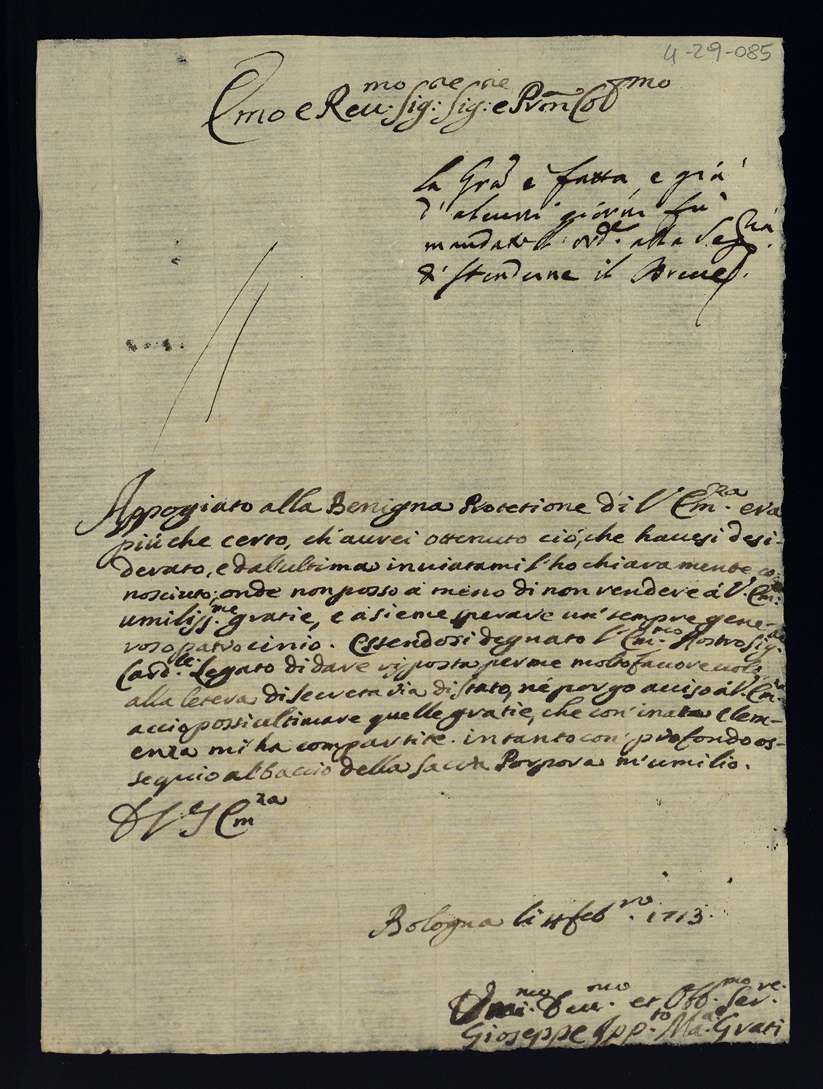 4-29-085
Emo e Reu:mo Sig:re Sig:re e Pron Col:mo
la Gra è fatta, e già
d'alcuni giorni fù
mandato l'ord.e alla Seg.ria
di stenderne il Breue.
Appogiato alla Benigna Protetione di V Em:za era
più che certo, ch'aurei ottenuto ciò, che hauesi desi-
derato, e dall'ultima inuiatami l'ho chiaramente co-
nosciuto; onde non posso a meno di non rendere à V. Em:za
umiliss:me gratie, e asieme sperare un sempre gene-
roso patrocinio. Essendosi degnato l'Em:mo Nostro Sig.
Card:le Legato di dare risposta per me molto fauoreuole
alla letera di secretaria di stato, né porgo auiso à V. Em:za
acciò possi ultimare quelle gratie, che con inata Clem-
enza mi ha compartite. in tanto con profondo os-
sequio al baccio della sacra Porpora m'umilio.
D V Em:za
Bologna li 11 feb:ro 1713.
Umi:mo Deu:mo et Obb:mo Ser:re
Gioseppe Ipp:to Ma: Grati